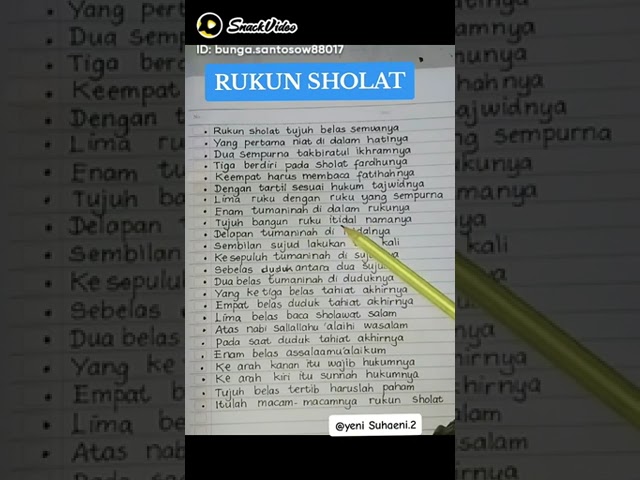 SnackVideo
ID: bunga.santosow88017
RUKUN SHOLAT
• Rukun sholat tujuh belas semuanya
• Yang pertama niat di dalam hatinya
• Dua sempurna takbiratul ikhramnya
• Tiga berdiri pada sholat fardhunya
• Keempat harus membaca fatihahnya
• Dengan tartil sesuai hukum tajwidnya
• Lima ruku dengan ruku yang sempurna
• Enam tumaninah di dalam rukunya
• Tujuh bangun ruku itidal namanya
• Delapan tumaninah di itidalnya
• Sembilan sujud lakukan kali
• Kesepuluh tumaninah di
• Sebelas duduk antara dua
• Dua belas tumaninah di duduknya
• Yang ke tiga belas tahiat akhirnya
• Empat belas duduk tahiat akhirnya
• Lima belas baca sholawat salam
• Atas nabi sallallahu 'alaihi wasalam
• Pada saat duduk tahiat akhirnya
• Enam belas assalaamu'alaikum
• Ke arah kanan itu wajib hukumnya
• Ke arah kiri itu sunnah hukumnya
• Tujuh belas tertib haruslah paham
• Itulah macam-macamnya rukun sholat
@yeni Suhaeni.2